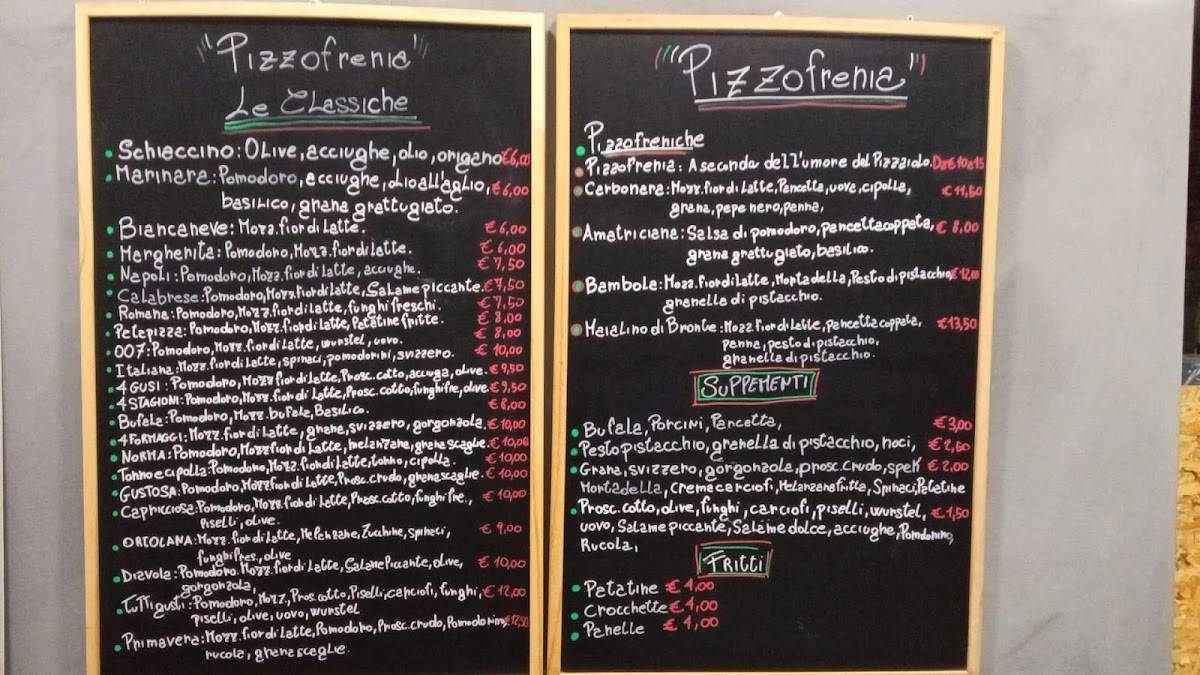 "Pizzofrenia"
Le Classiche
Schiaccino: Olive, acciughe, olio, origano €6,00
Marinara: Pomodoro, acciughe, olio all'aglio, €6,00
basilico, grana grattugiato.
Biancaneve: Mozz. fior di Latte. €6,00
Margherita: Pomodoro, Mozz. fior di Latte. €6,00
Napoli: Pomodoro, Mozz. fior di Latte, acciughe. €7,50
Calabrese: Pomodoro, Mozz. fior di Latte, Salame piccante. €7,50
Romana: Pomodoro, Mozz. fior di Latte, funghi freschi. €7,50
Petepizza: Pomodoro, Mozz. fior di Latte, Patatine fritte. €8,00
007: Pomodoro, Mozz. fior di Latte, wurstel, uovo. €8,00
Italiana: Mozz. fior di Latte, spinaci, pomodorini, svizzero. €10,00
4 GUSI: Pomodoro, Mozz fior di Latte, Prosc. cotto, acciuga, olive. €9,50
4 STAGIONI: Pomodoro, Mozz. fior di Latte, Prosc. cotto, funghi fre, olive €9,50
Bufala: Pomodoro, Mozz. bufala, Basilico. €8,00
4 FORMAGGI: Mozz. fior di Latte, grana, svizzero, gorgonzola. €10,00
NORMA: Pomodoro, Mozz. fior di Latte, melanzane, grana scaglie. €10,00
Tonno e cipolla: Pomodoro, Mozz. fior di Latte, tonno, cipolla. €10,00
GUSTOSA: Pomodoro, Mozz fior di Latte, Prosc. crudo, grana scaglie. €10,00
Capricciosa: Pomodoro, Mozz. fior di Latte, Prosc cotto, funghi fre., €10,00
Piselli, olive.
ORTOLANA: Mozz. fior di Latte, Melenzane, Zucchine, Spinaci, €9,00
funghi fres, olive
Diavola: Pomodoro. Mozz. fior di Latte, Salame Piccante, olive, €10,00
gorgonzola,
Tutti gusti: Pomodoro, Mozz, Pros. cotto, Piselli, carciofi, funghi, €12,00
Piselli, olive, uovo, wurstel
Primavera: Mozz. fior di Latte, Pomodoro, Prosc. crudo, Pomodorino, €12,50
rucola, grana scaglie.
"Pizzofrenia"
Pizzofreniche
Pizzofrenia: A seconda dell'umore del Pizzaiolo. Da €10 a 15
Carbonara: Mozz. fior di Latte, Pancetta, uova, cipolla, €11,50
grana, pepe nero, panna,
Amatriciana: Salsa di pomodoro, pancetta coppata, €8,00
grana grattugiato, basilico.
Bambola: Mozz. fior di Latte, Mortadella, Pesto di pistacchio, €12,00
granella di pistacchio.
Maialino di Bronte: Mozz. fior di Latte, pancetta coppata, €13,50
panna, pesto di pistacchio,
granella di pistacchio.
SUPPEMENTI
Bufala, Porcini, Pancetta, €3,00
Pesto pistacchio, granella di pistacchio, noci, €2,50
Grana, svizzero, gorgonzola, prosc. crudo, spek €2,00
Mortadella, Crema carciofi, Melanzana fritta, Spinaci, Patatine
Prosc. cotto, olive, funghi, carciofi, piselli, wurstel, €1,50
uovo, Salame piccante, Salame dolce, acciughe, Pomodorino,
Rucola,
FRITTI
Patatine €4,00
Crocchette €4,00
Panelle €4,00